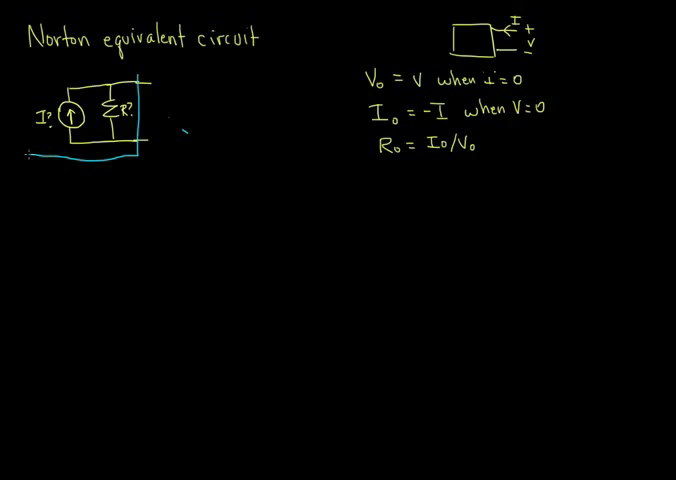 Norton equivalent circuit
I
+
V
-
V₀ = V when i = 0
I? R?
I₀ = -I when V=0
R₀ = I₀/V₀